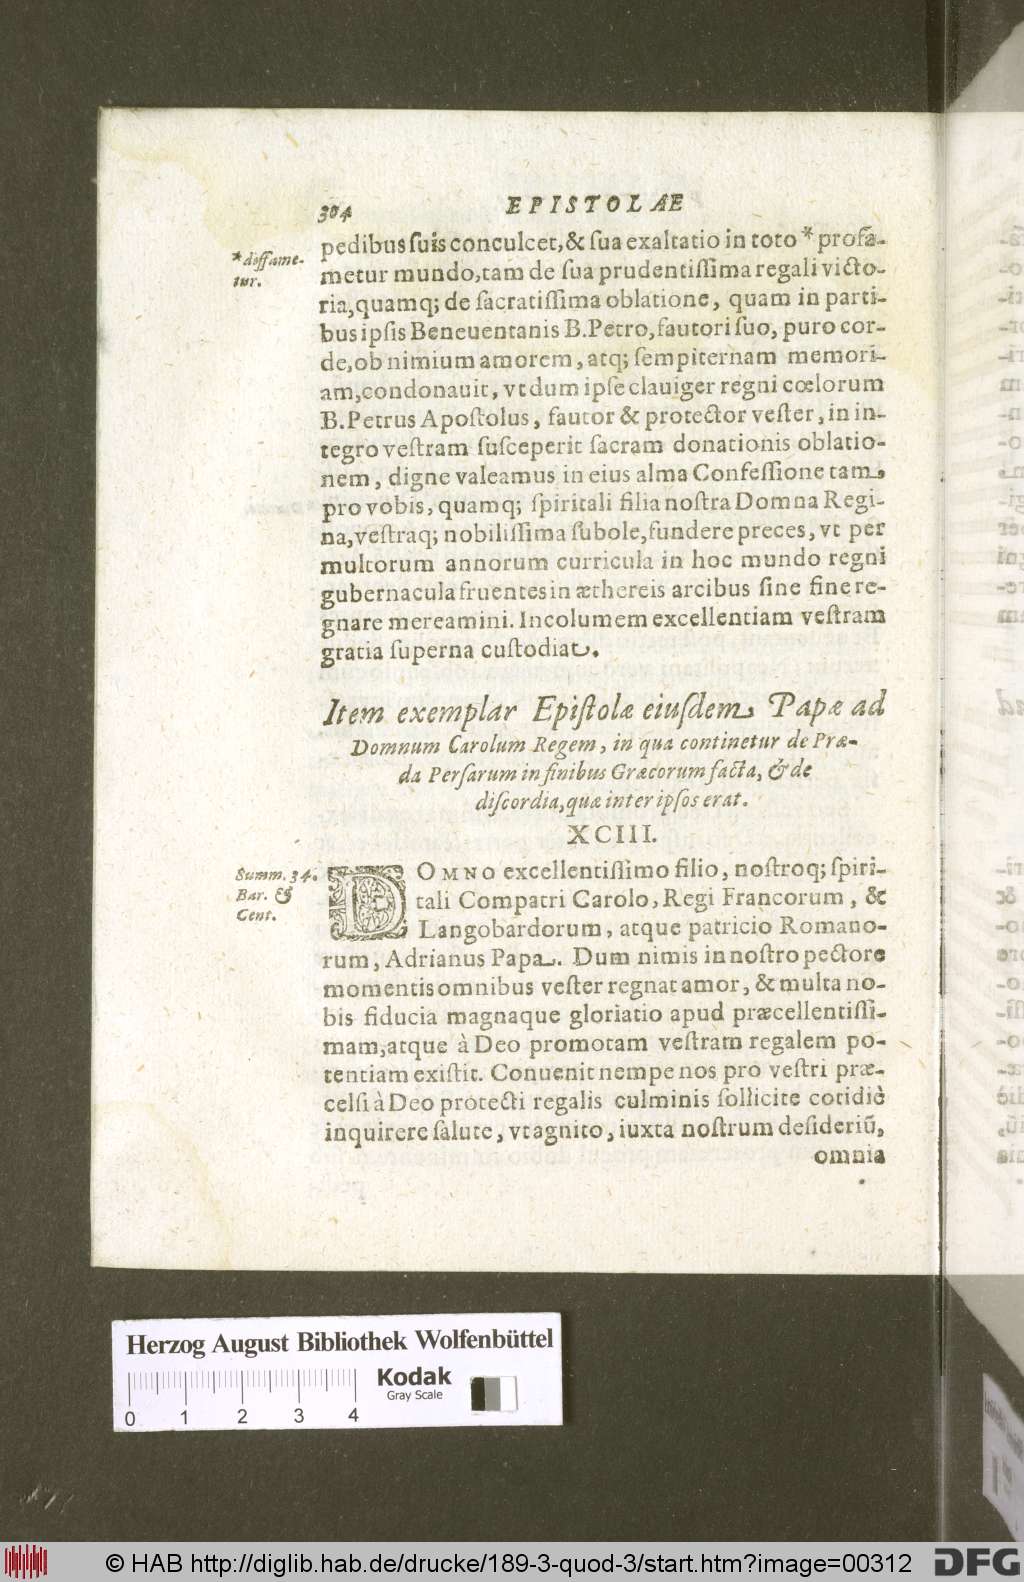 304 EPISTOLAE
pedibus ſuis conculcet, & ſua exaltatio in toto * profa-
*diffame-
tur.
metur mundo, tam de ſua prudentiſſima regali victo-
ria, quamq; de ſacratiſſima oblatione, quam in parti-
bus ipſis Beneuentanis B. Petro, fautori ſuo, puro cor-
de, ob nimium amorem, atq; ſempiternam memori-
am, condonauit, vt dum ipſe clauiger regni cœlorum
B. Petrus Apoſtolus, fautor & protector veſter, in in-
tegro veſtram ſuſceperit ſacram donationis oblatio-
nem, digne valeamus in eius alma Confeſſione tam,
pro vobis, quamq; ſpiritali filia noſtra Domna Regi-
na, veſtraq; nobiliſſima ſubole, fundere preces, vt per
multorum annorum curricula in hoc mundo regni
gubernacula fruentes in æthereis arcibus ſine fine re-
gnare mereamini. Incolumem excellentiam veſtram
gratia ſuperna cuſtodiat.
Item exemplar Epiſtolæ eiuſdem Papæ ad
Domnum Carolum Regem, in qua continetur de Præ-
da Perſarum in finibus Græcorum facta, & de
diſcordia, quæ inter ipſos erat.
XCIII.
Summ. 34.
Bar. &
Cent.
DOMNO excellentiſſimo filio, noſtroq; ſpiri-
tali Compatri Carolo, Regi Francorum, &
Langobardorum, atque patricio Romano-
rum, Adrianus Papa. Dum nimis in noſtro pectore
momentis omnibus veſter regnat amor, & multa no-
bis fiducia magnaque gloriatio apud præcellentiſſi-
mam, atque à Deo promotam veſtram regalem po-
tentiam exiſtit. Conuenit nempe nos pro veſtri præ-
celſi à Deo protecti regalis culminis ſollicite cotidiè
inquirere ſalute, vt agnito, iuxta noſtrum deſideriũ,
omnia
Herzog August Bibliothek Wolfenbüttel
Kodak
Gray Scale
0 1 2 3 4
© HAB http://diglib.hab.de/drucke/189-3-quod-3/start.htm?image=00312
DFG